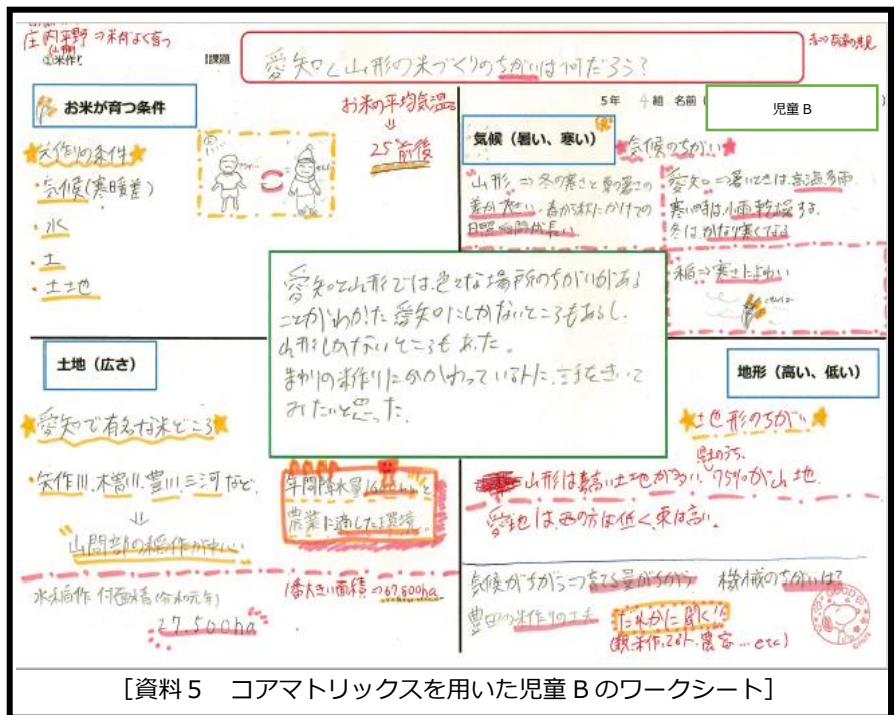 庄内平野⇒米がよく育つ
①米作り
課題
愛知と山形の米づくりのちがいは何だろう？
5年 4組 名前（
児童 B
お米が育つ条件
お米の平均気温
⇓
25°前後
米作りの条件
・気候（寒暖差）
・水
・土
・土地
気候（暑い、寒い）
気候のちがい
山形 ⇒冬の寒さと夏の暑さの
差が大きい。春から秋にかけての
日照時間が長い
愛知⇒暑いときは、高温多雨
寒い時は、小雨、乾燥する。
冬はかなり寒くなる
稲⇒寒さによわい
愛知と山形では、色々な場所のちがいがある
ことがわかった 愛知にしかないところもあるし、
山形しかないところもあった。
まわりの米作りにかかわっている人に、話をきいて
みたいと思った。
土地（広さ）
愛知で有名な米どころ
・矢作川、木曽川、豊川 三河など、
⇓
山間部の稲作が中心
年間降水量1600mmと
農業に適した環境
水稲作付面積（令和元年）
27,500ha
1番大きい面積⇒67,800ha
地形（高い、低い）
土地形のちがい
県土のうち、
山形は高い土地が多い、75%が山地
愛知は、西の方は低く、東は高い。
気候がちがう⇒育てる量がちがう
機械のちがいは？
豊田の米作りの工夫
だれかに聞く
GOOD
[資料５ コアマトリックスを用いた児童 B のワークシート]